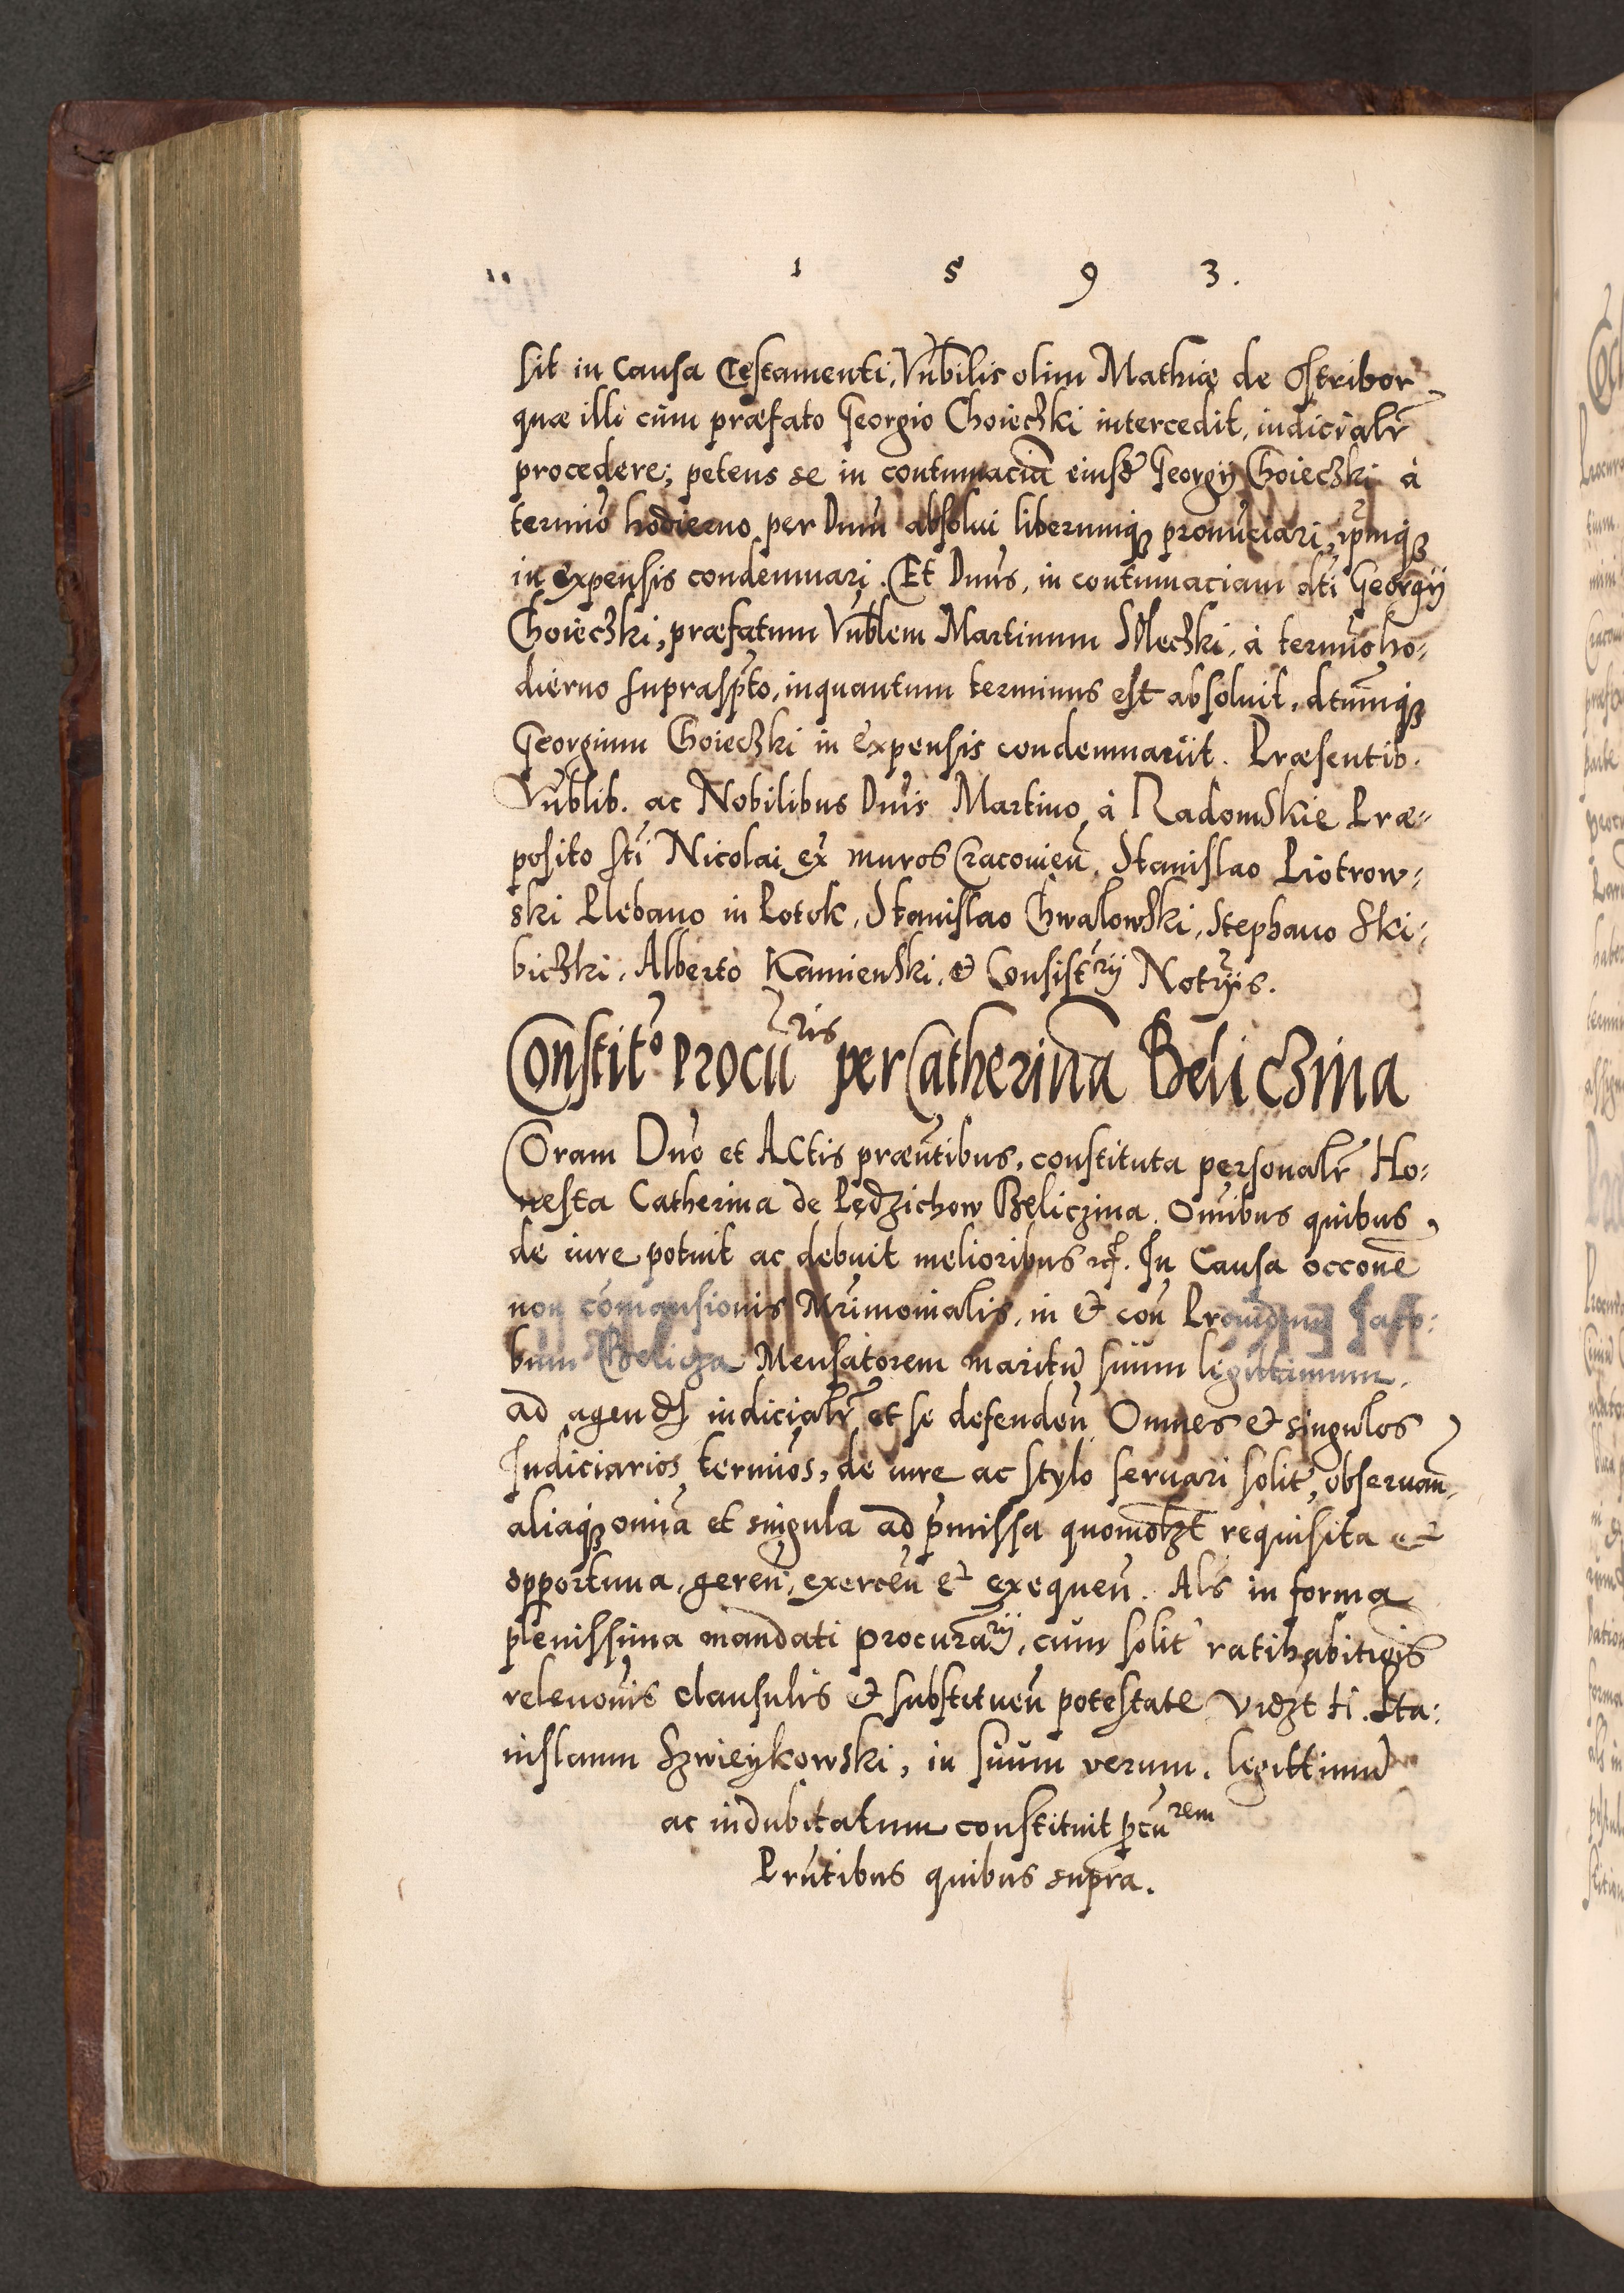 1 5 9 3.
sit in Causa Testamenti, Vnbilis olim Mathiæ de Ostribor
quæ illi cùm præfato Georgio Choieczki intercedit, iudicialr̃
procedere; petens se in contumaciã eiusd̃ Georgij Choieczki à
termĩo hodierno per Dnũ absolui liberumq₃ pronũciari, ip̃mq₃
in expensis condemnari. Et Dnũs, in contumaciam dti Georgij
Choieczki, præfatum Vnblem Martinum Mleczki, à termĩo ho⸗
dierno suprasp̃to, inquantum terminus est absoluit, dtumq₃
Georgium Choieczki in expensis condemnauit. Præsentib.
Vnblib. ac Nobilibus Dnis Martino à Radomskie Præ⸗
posito sti Nicolai ex muros Cracouieñ, Stanislao Piotrow⸗
ski Plebano in Potok, Stanislao Chwalowski, Stephano Ski⸗
biczki, Alberto Kamienski, & Consistrij Notrijs.
Constit᷎o Procũris per Catherinã Beliczina
Coram Dno et Actis præñtibus, constituta personalr̃ Ho⸗
nesta Catherina de Lędzichow Beliczina. Om̃ibus quibus
de iure potuit ac debuit melioribus etc. In Causa occõne
non comansionis Mr̃imonialis, in & con Prouidum Jaco⸗
bum Belicza Mensatorem maritũ suum legittimum,
ad agend̃ iudicialr̃ et se defendeñ Omnes & singulos
Iudiciarios termĩos, de iure ac stylo seruari solit̃, obseruañ,
aliaq₃ om̃ia et singula ad p̃missa quomolzt requisita et
opportuna, gereñ, exerceñ & exequeñ. Als in forma
plenissima mandati procurarij, cum solit̃ ratihabitiõis
releuonis clausulis & substitueñ potestate vidzt H. Sta⸗
nislaum Szwieykowski, in suum verum, legittimũ
ac indubitatum constituit pcũrem
Prñtibus quibus supra.